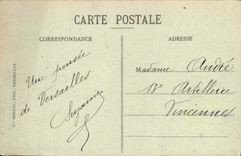 CARTE POSTALE
CORRESPONDANCE
ADRESSE
Une pensée
de Versailles
Suzanne
Madame André
Artillerie
Vincennes